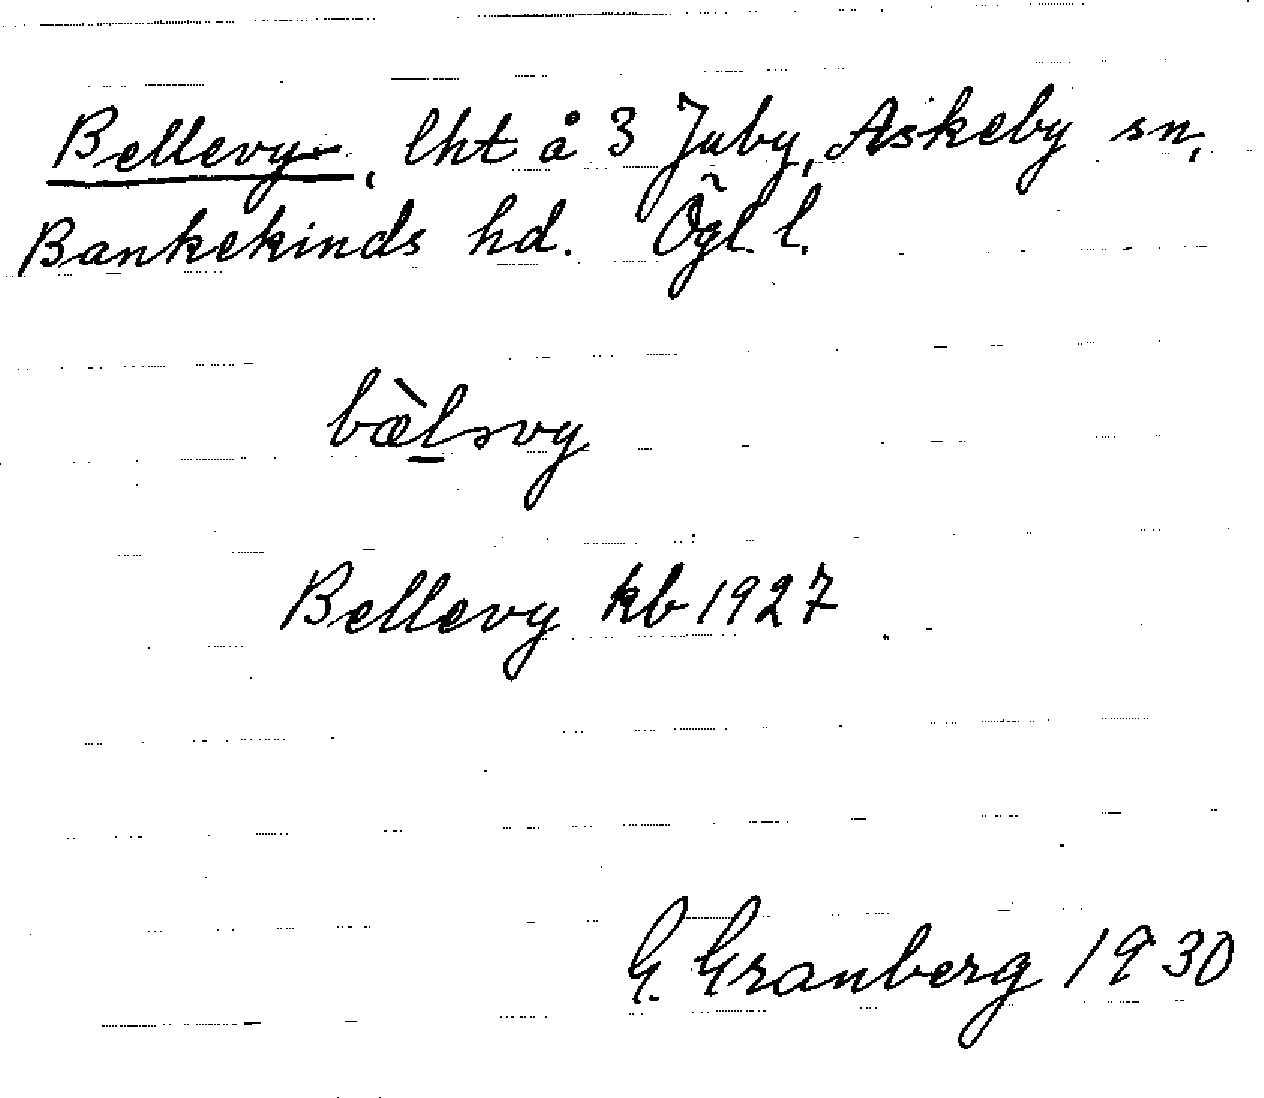 Bellevy, lht å 3 Juby, Askeby sn,
Bankekinds hd. Ögl. l.
bæ̀lsvy
Bellevy kb 1927
G. Granberg 1930